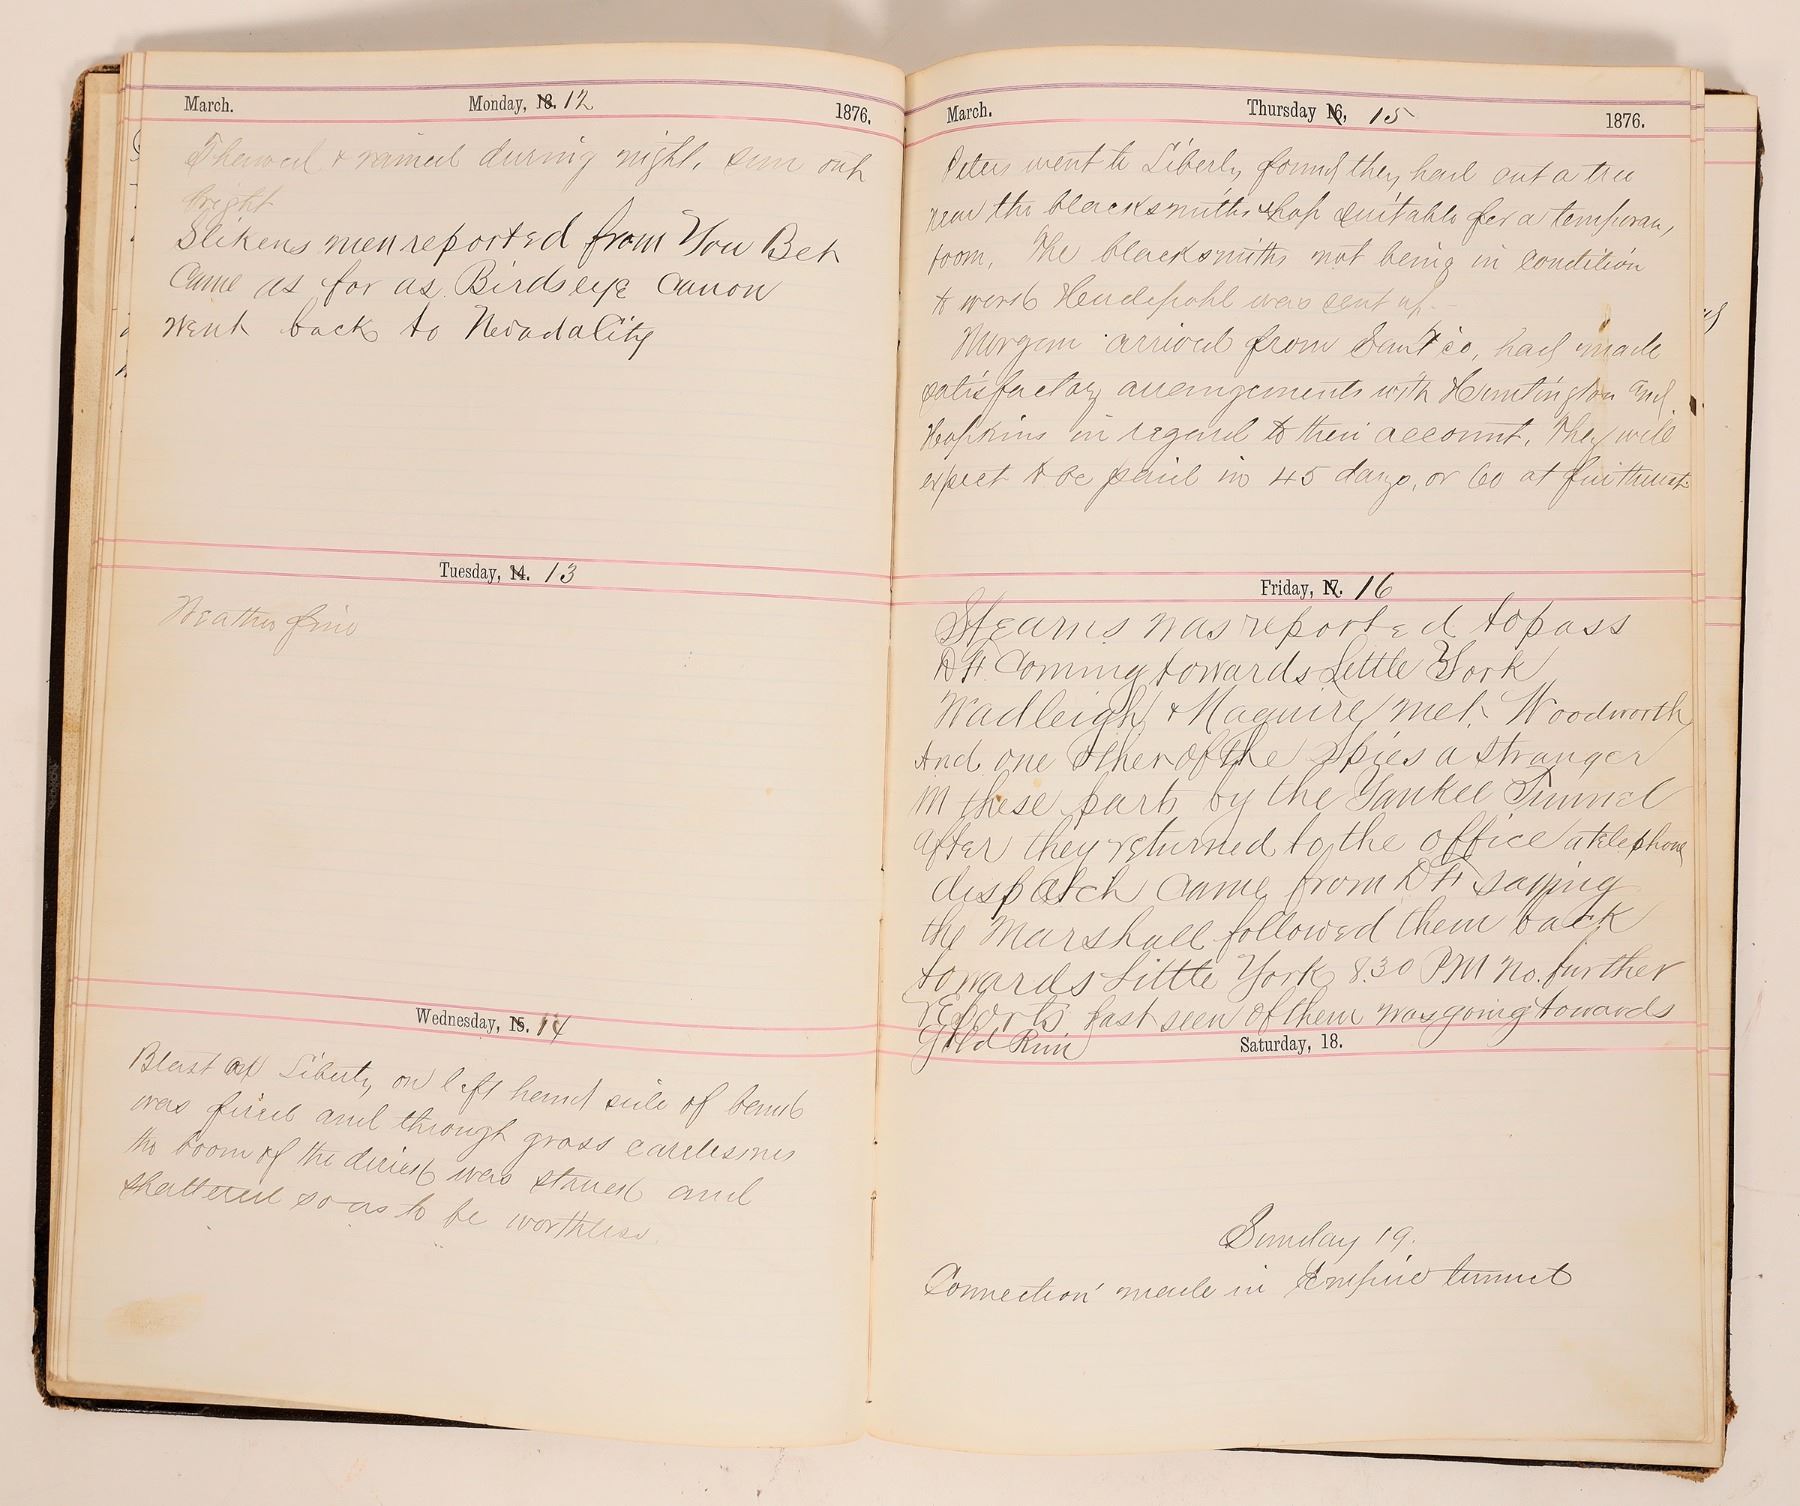 March. Monday, 13. 12 1876.
Thawed & rained during night, sun out
bright
Slikens men reported from You Bet
Came as far as Birdseye Canon
went back to Nevada City
Tuesday, 14. 13
Weather fine
Wednesday, 15. 14
Blast at Liberty on left hand side of bank
was fired and through gross carelesness
the boom of the derick was struck and
shattered so as to be worthless.
March. Thursday 16, 15 1876.
Peters went to Liberty found they had cut a tree
near the blacksmiths shop suitable for a temporary
boom. The blacksmiths not being in condition
to work was sent up.
Morgan arrived from San Fco, had made
satisfactory arrangements with Huntington and
Hopkins in regard to their account. They will
expect to be paid in 45 days, or 60 at furtherest
Friday, 17. 16
Stearns was reported to pass
D F. Coming towards Little York
Wadleigh & Maguire met Woodworth
And one other of the spies a stranger
in these parts by the Yankee Tunnel
after they returned to the office a telephone
dispatch came from D F saying
the Marshall followed them back
towards Little York 8.30 PM no further
reports last seen of them was going towards
Gold Run
Saturday, 18.
Sunday 19.
Connection made in Empire tunnel